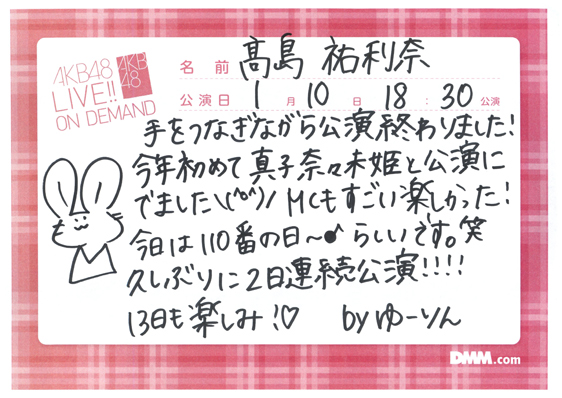 AKB48
LIVE!!
ON DEMAND
AKB
48
名前 髙島 祐利奈
公演日 1月10日 18:30公演
手をつなぎながら公演終わりました!
今年初めて真子奈々未姫と公演に
でました\(^o^)/ MCもすごい楽しかった!
今日は110番の日〜♪らしいです。笑
久しぶりに2日連続公演!!!!
13日も楽しみ!♡ byゆーりん
DMM.com